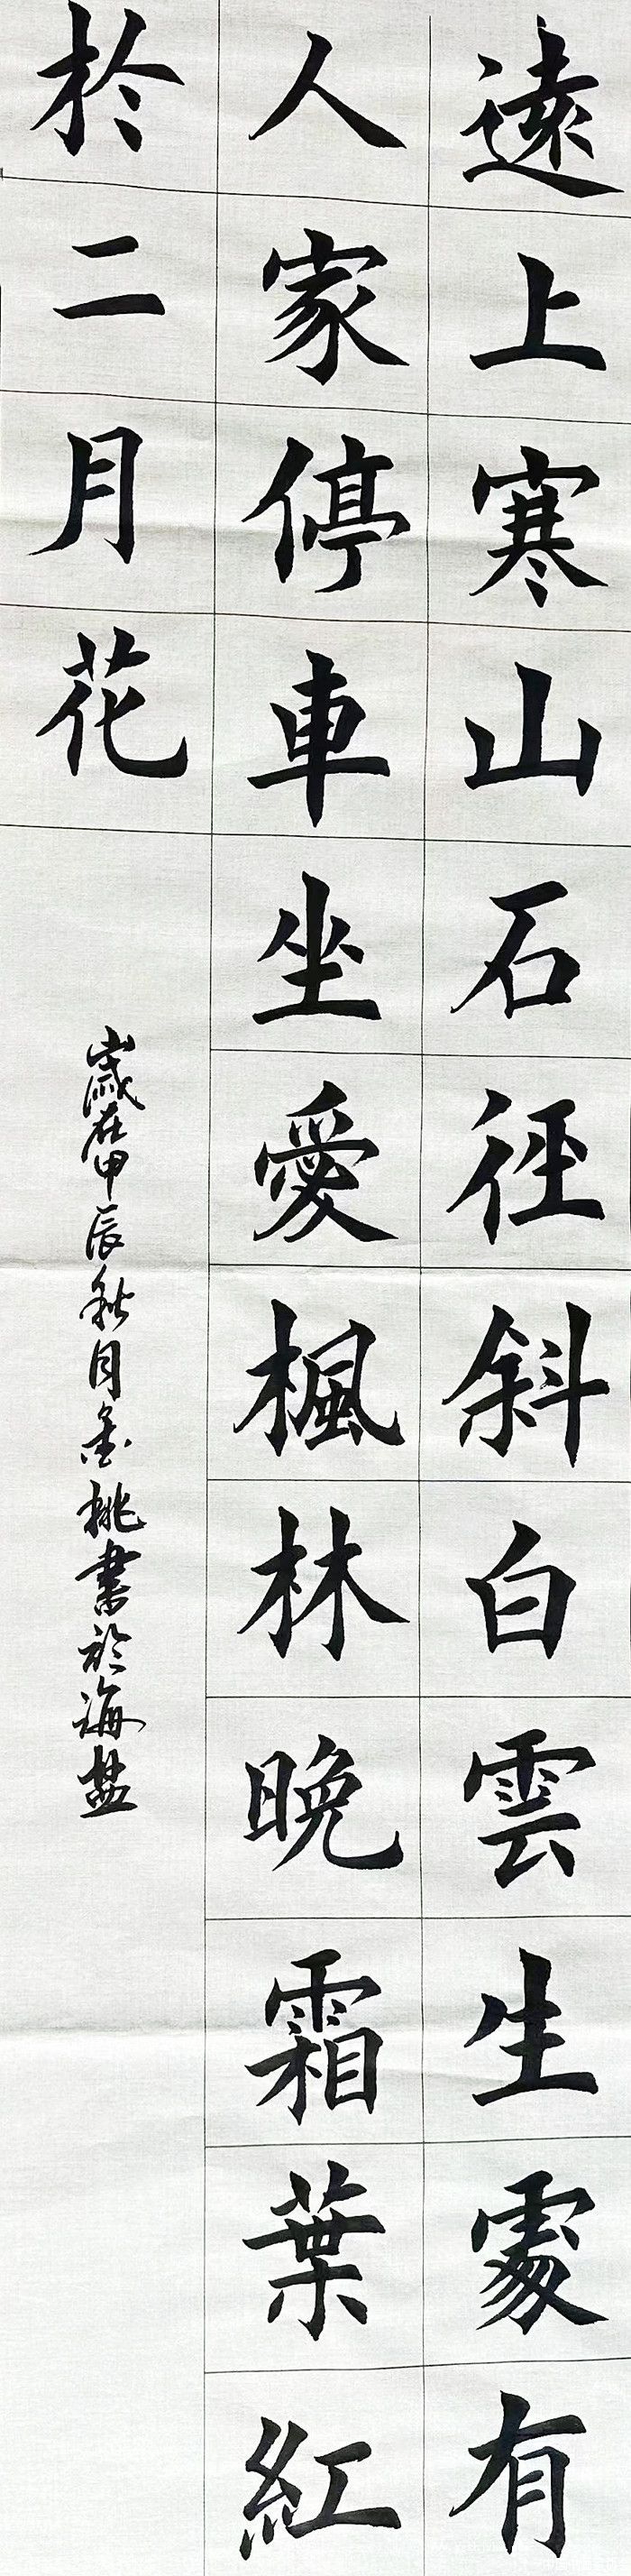 遠上寒山石徑斜白雲生處有
人家停車坐愛楓林晚霜葉紅
於二月花
歲在甲辰秋月金桃書於海盐